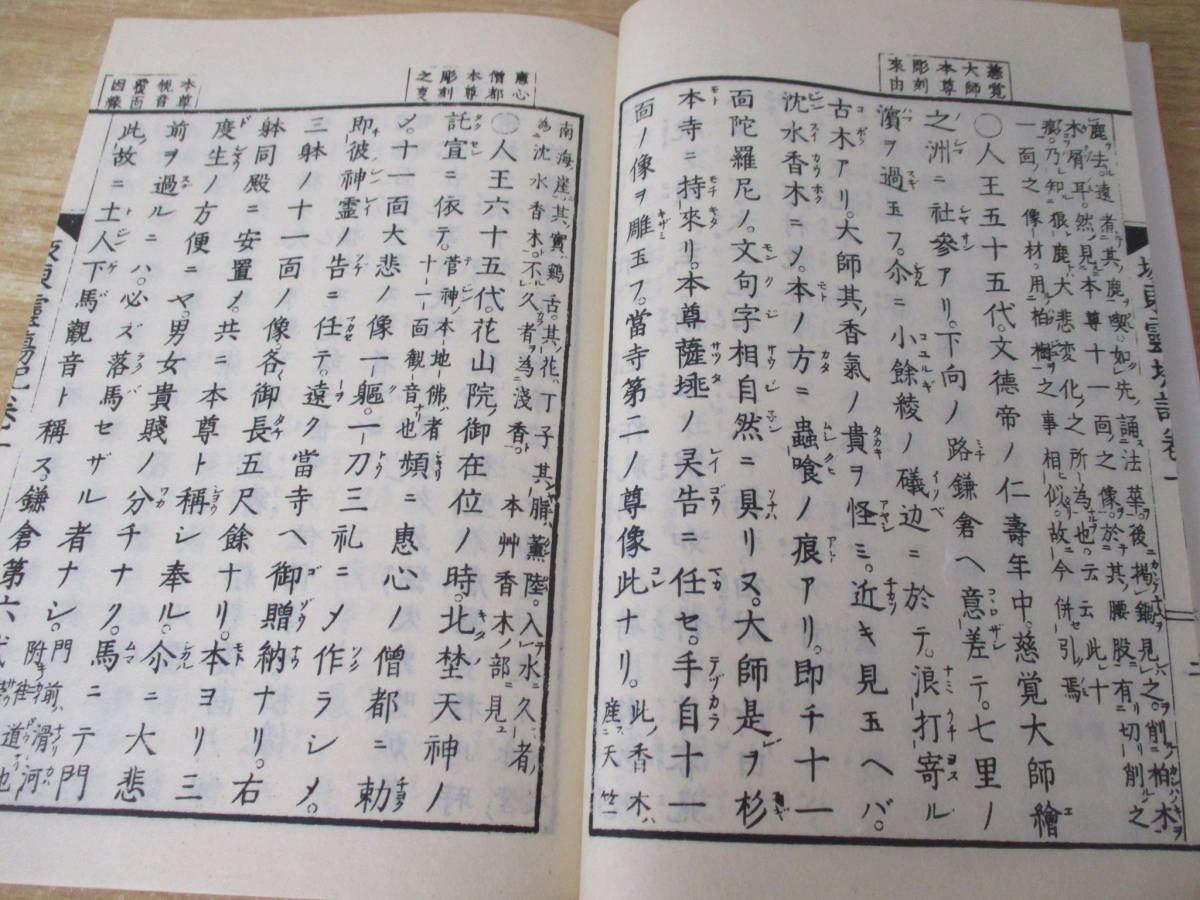 慈覚
大師
本尊
彫刻
来由
鹿ヲ去ル遠者ニ其ノ鹿ヲ喫。如シ先ノ誦ス法華。後ニ掲鍋見レハ之。削ル柏木ヲ
木屑耳。然ノ見本尊十一面之像。於其ノ腰股有切リ削ルノ之
痕。乃知ル狼鹿ハ大悲変化ノ之所為也云云此ノ十
一面ノ之像材ニ用柏樹之事相似。故ニ今併セ引焉
〇人王五十五代。文徳帝ノ仁壽年中。慈覚大師繪
之洲ニ社参アリ。下向ノ路鎌倉ヘ意差テ。七里ノ
濱ヲ過玉フ。尒ニ小餘綾ノ礒辺ニ於テ。浪打寄ル
古木アリ。大師其ノ香氣ノ貴ヲ怪ミ。近キ見玉ヘバ。
沈水香木ニノ。本ノ方ニ蟲喰ノ痕アリ。即チ十一
面陀羅尼ノ。文句字相自然ニ具リヌ。大師是ヲ杉
本寺ニ持來リ。本尊薩埵ノ灵告ニ任セ。手自十一
面ノ像ヲ雕玉フ。當寺第二ノ尊像此ナリ。此ノ香木ハ
産ス天竺
惠心
僧都
本尊
彫刻
之叓
南海崖。其ノ實ハ鶏舌。其ノ花ハ丁子其ノ脂ハ薫陸。入テ水ニ久者ハ
為沈水香木。不久カラ者ヲ為淺香ト。本艸香木ノ部ニ見ユ
〇人王六十五代。花山院ノ御在位ノ時。北埜天神ノ
託宣ニ依テ。菅神ノ本地佛ハ者十一面観音也頻ニ恵心ノ僧都ニ勅
メ。十一面大悲ノ像一軀。一刀三礼ニメ作ラシメ。
即彼神霊ノ告ニ任テ。遠ク當寺ヘ御贈納ナリ。右
三躰ノ十一面ノ像各〻御長五尺餘ナリ。本ヨリ三
躰同殿ニ安置メ。共ニ本尊ト稱シ奉ル。尒ニ大悲
本尊
観音
覆面
因縁
度生ノ方便ニヤ。男女貴賤ノ分チナク。馬ニテ門
前ヲ過ルニハ。必ズ落馬セザル者ナシ。門前ハ滑河
此ノ故ニ土人下馬觀音ト稱ス。鎌倉第六代